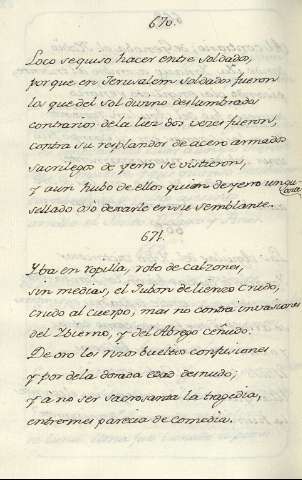 670.
Loco se quiso hacer entre soldados,
porque en Jerusalem soldados fueron
los que del sol divino deslumbrados
contrarios de la luz dos veces fueron,
contra su resplandor de acero armados
sacrilegos de yerro se vistieron,
y aun hubo de ellos quien de yerro un gu-
ante
sellado osó dexarle en su semblante.
671.
Yba en ropilla, roto de calzones,
sin medias, el Jubon de lienzo crudo,
crudo al cuerpo, mas no contra invasiones
del Ybierno, y del Abrego ceñudo.
De oro los rizos bueltos confusiones
y por de la dorada edad desnudo;
y a no ser sacrosanta la tragedia,
entremes parecia de comedia.